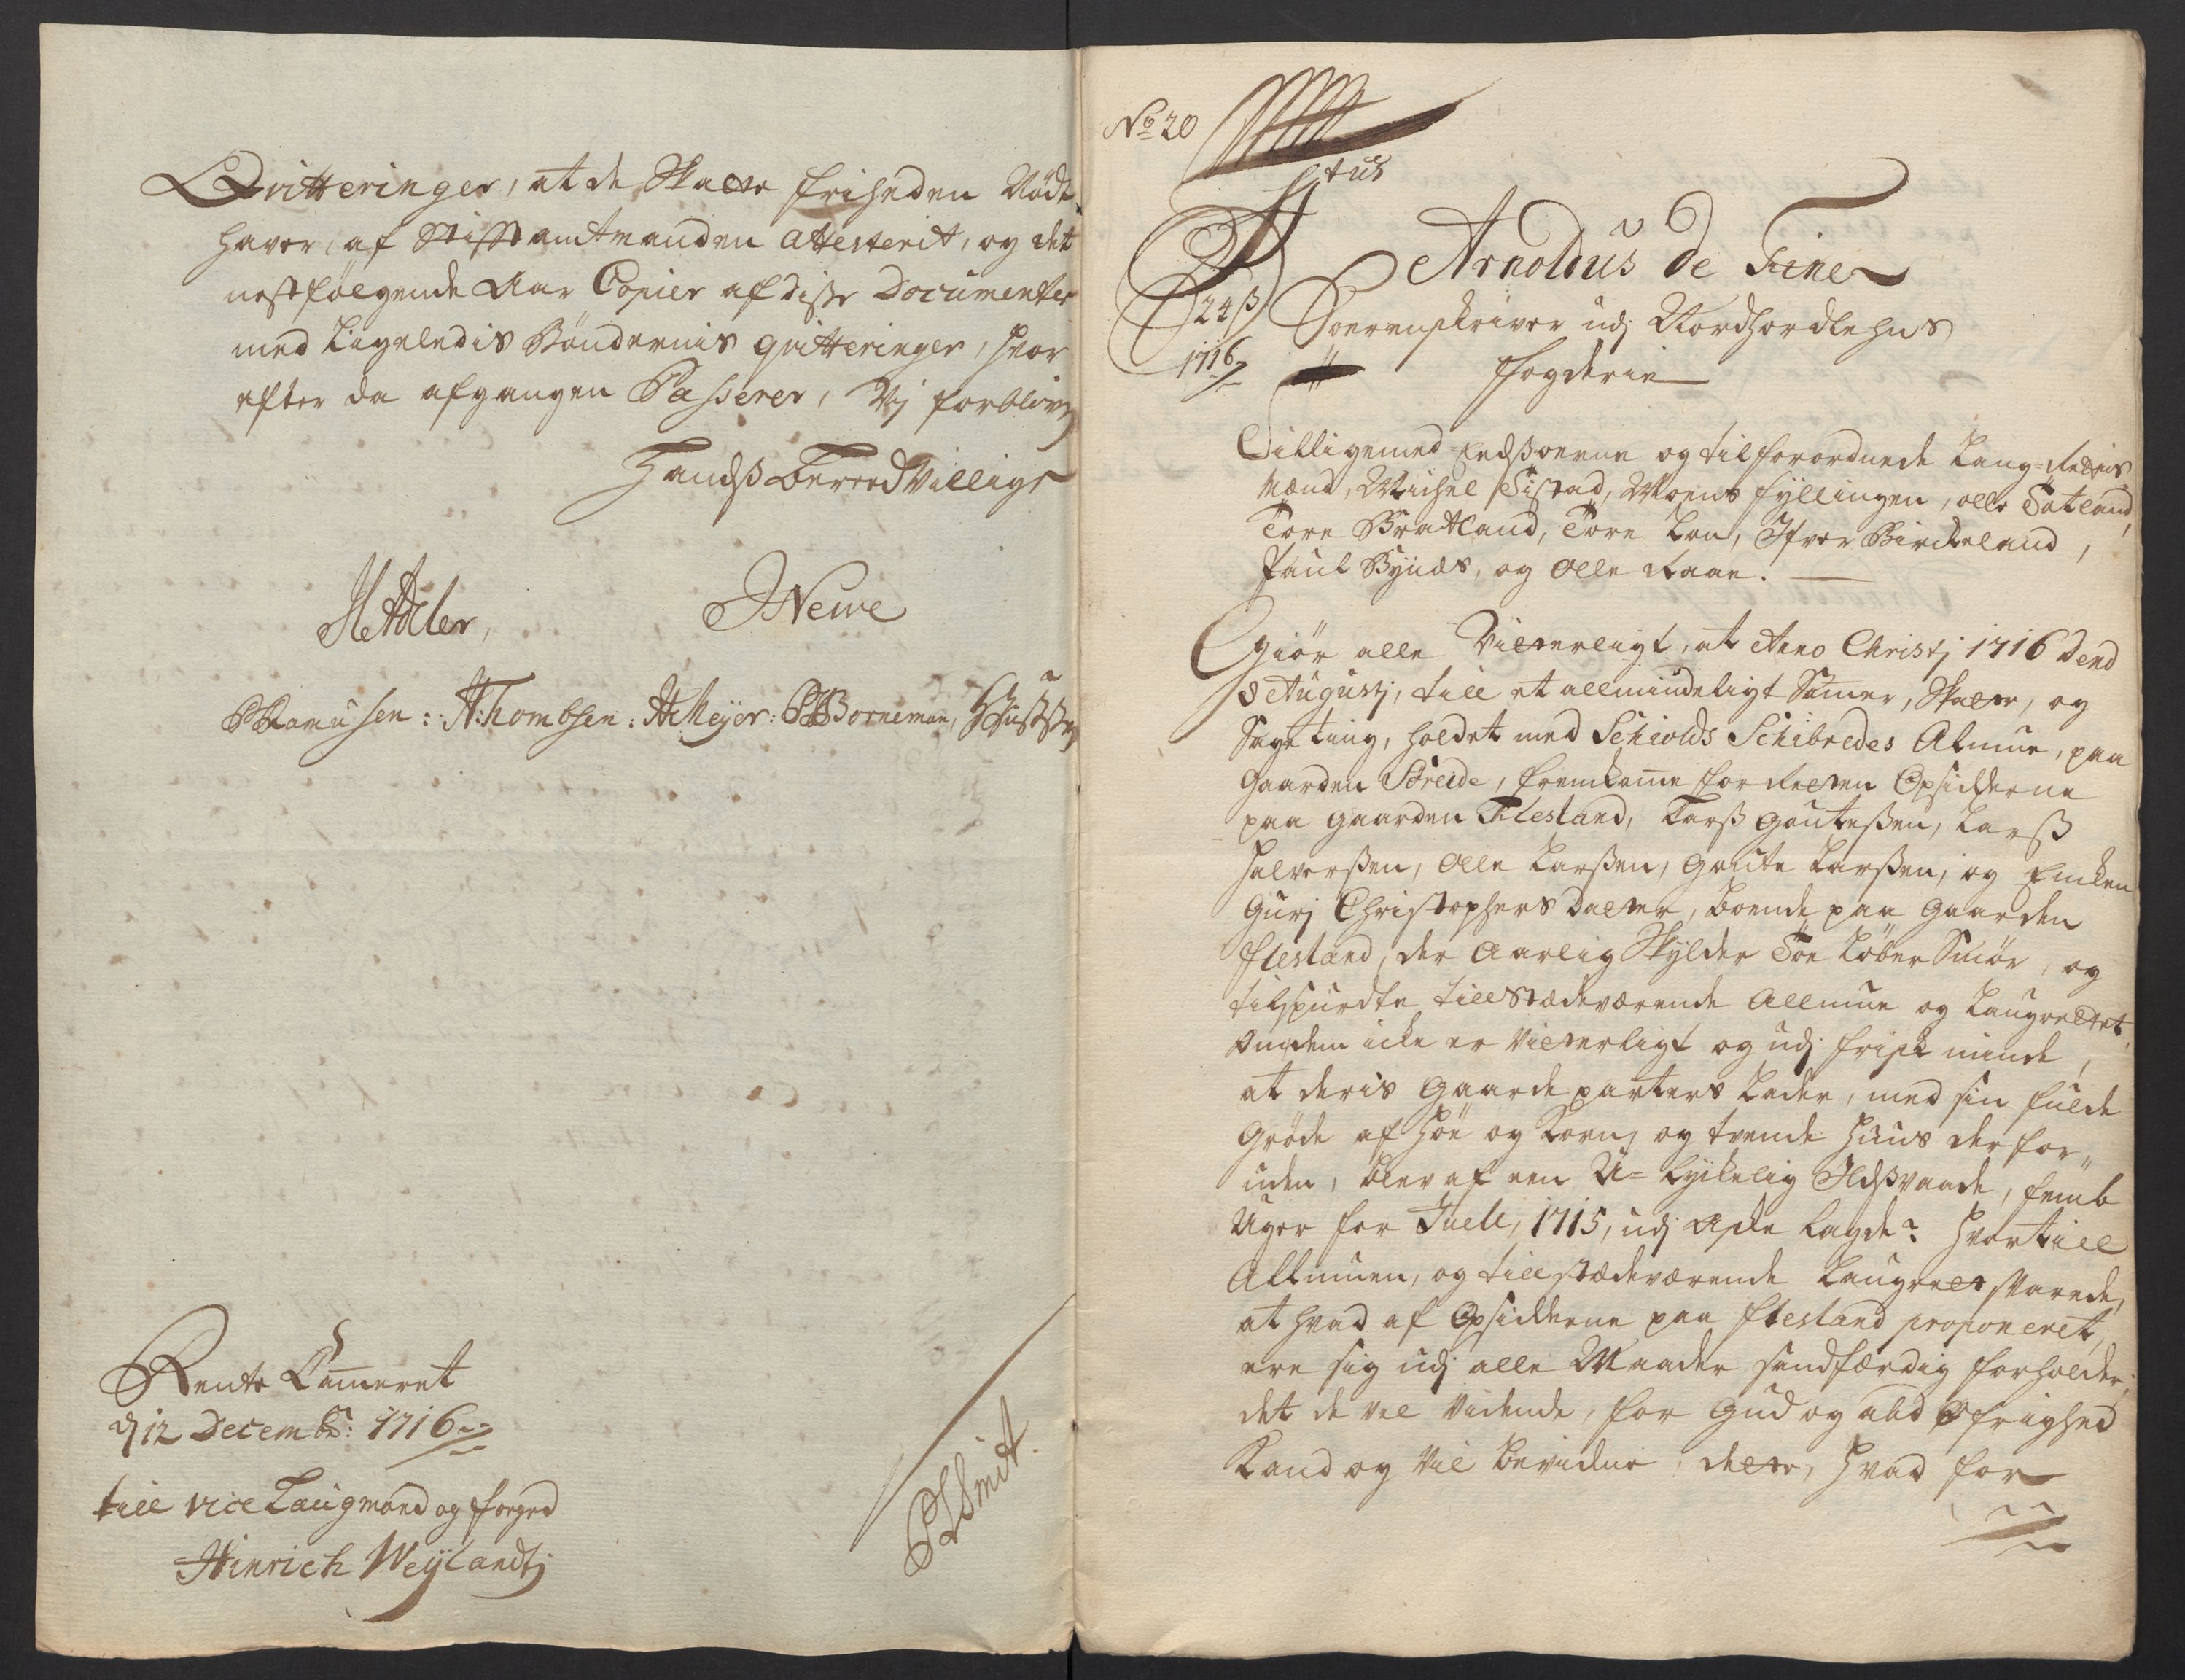 Qvitteringer, at de Skatte friheden Nödt
haver, af Stifftamtmanden atteserit, og det
nestfölgende Aar Copier af disse Documenter
med ligeledis Böndernis qvitteringer, hvor
efter da afgangen Passerer, Vj forblive
Handß Bereedvillige
Adeler, JNeuve
PRamusen: AThombsen: AMeyer: Borneman,
Rente Cammeret
d 12 Decembr: 1716
till vice Laugmand og foged
Hinrich Weylandtj
PSmit.
No 20
24 ß
1716
Arnoldus de Fine
Sorenskriver udj Nordhordlehns
fogderie
Tilligemed Eedßorne og tilforordnede Laug-Rettis
Mænd, Michel Tistad, Moens fyllingen, olle Tatland,
Tore Bratland, Tore Lou, Ifver Birckeland,
Paul Bynæs, og Olle Raae.
Giör alle Vitterligt, at Anno Christj 1716 Dend
8 Augustj, till et allmindeligt Sommer, Skatte, og
Sage ting, holdet med Schiolds Schibredes Almue, paa
Gaarden Söreide, fremkomme for Retten Opsidderne
paa gaarden Flesland, Larß Gouteßen, Larß
Halverßen, Olle Larßen, Goute Larßen, og Encken
Gurj Christophersdatter, boende paa Gaarden
flesland, der aarlig Skylder Toe Løber Smör, og
tilspurdte tillstædeværende Allmue og Laugrettet,
om dem icke er Vitterligt og udj frisk minde,
at deris Gaarde parters Lader, med sin fulde
Gröde af Höe og Korn, og tvende Huus der for„
uden, blev af een U-Lyckelig Ildßvaade, femb
Uger for Juell, 1715, udj aske lagde? Hvortill
Allmuen, og tillstædeværende Laugrett svarede,
at hvad af Opsidderne paa flesland proponerit,
ere sig udj alle Maader sandfærdig forholder,
det de vel vidende, for Gud og all Öfrighed
Kand og vil bevidne, dette, hvad for